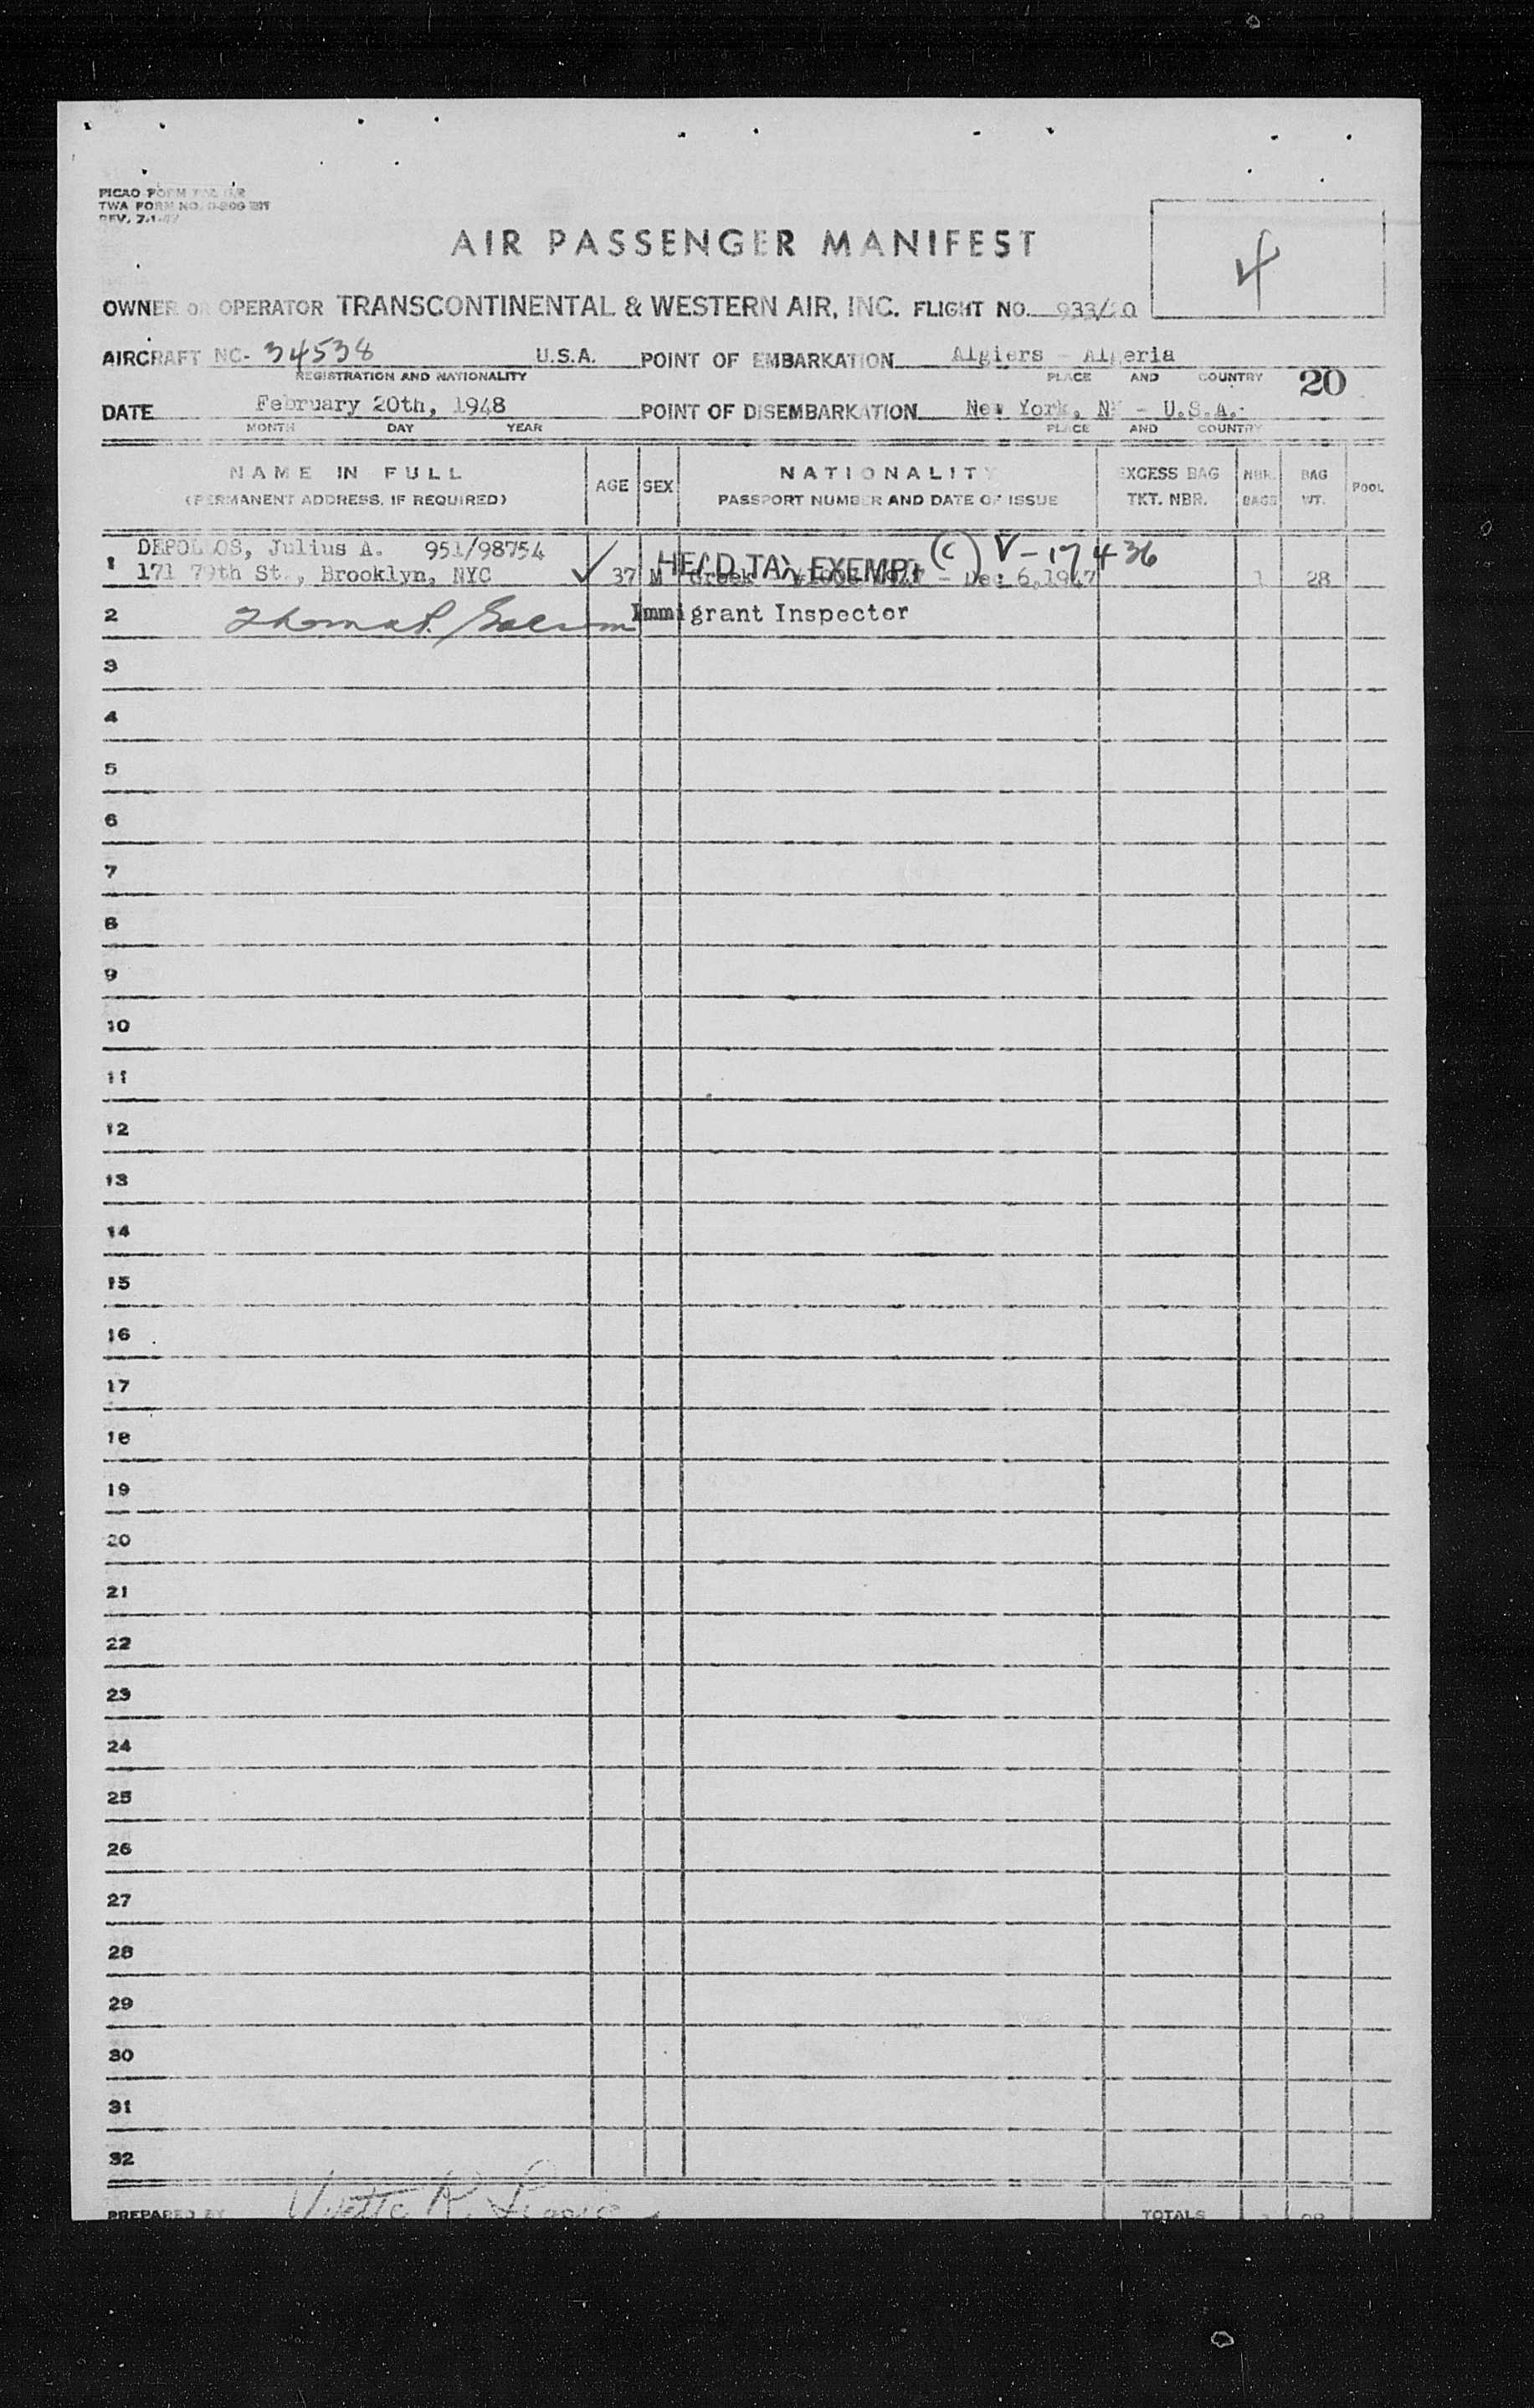 PICAO FORM
TWA FORM NO.
REV. 7-1-47
AIR PASSENGER MANIFEST
4
OWNER OR OPERATOR TRANSCONTINENTAL & WESTERN AIR, INC. FLIGHT NO. 933/20
AIRCRAFT NC- 34538 U.S.A. POINT OF EMBARKATION Algiers - Algeria
REGISTRATION AND NATIONALITY PLACE AND COUNTRY 20
DATE February 20th, 1948 POINT OF DISEMBARKATION New York, NY - U.S.A.
MONTH DAY YEAR PLACE AND COUNTRY
NAME IN FULL AGE SEX NATIONALITY EXCESS BAG NBR. BAG POOL
(PERMANENT ADDRESS, IF REQUIRED) PASSPORT NUMBER AND DATE OF ISSUE TKT. NBR. BAGS WT.
1 Julius A. 951/98754 HEAD TAX EXEMPT (C) V-17436
171 79th St., Brooklyn, NYC 37 M Greek - Dec 6, 1947 1 28
2 Immigrant Inspector
3
4
5
6
7
8
9
10
11
12
13
14
15
16
17
18
19
20
21
22
23
24
25
26
27
28
29
30
31
32
PREPARED BY Yvette R. TOTALS